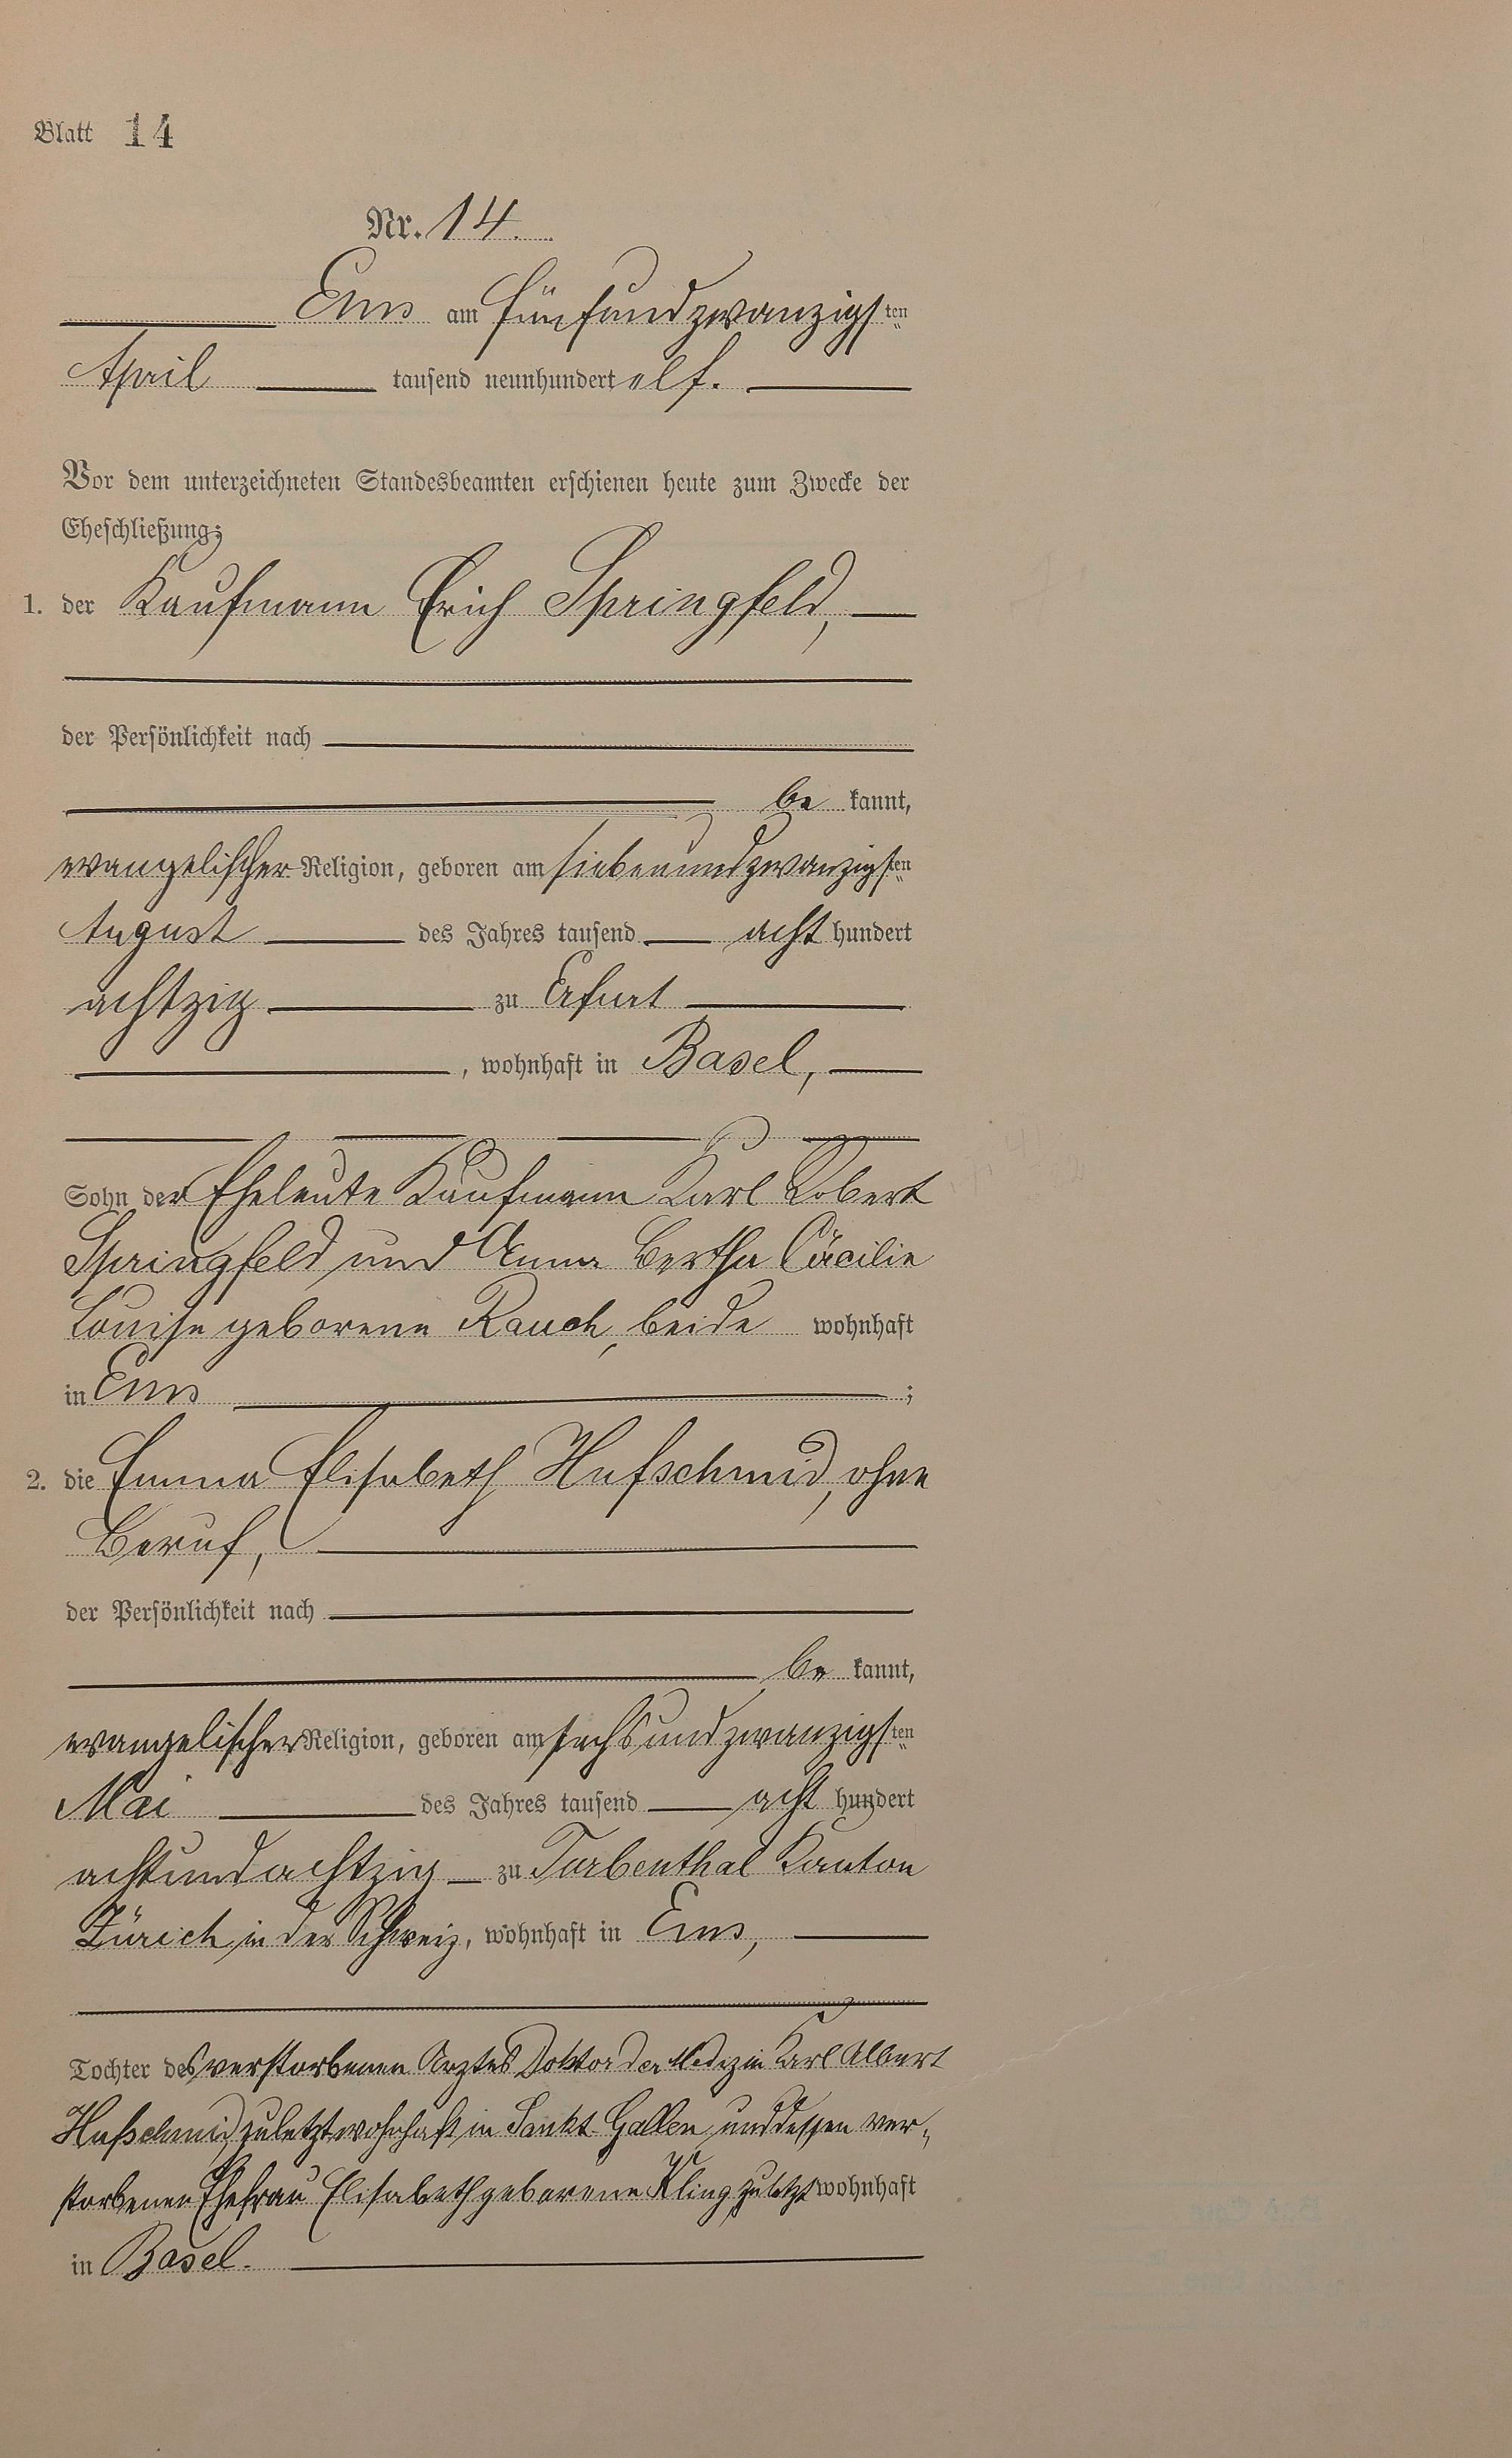 Blatt 14
Nr. 14.
Ems am fünfundzwanzigsten
April tausend neunhundert elf.
Vor dem unterzeichneten Standesbeamten erschienen heute zum Zwecke der
Eheschließung:
1. der Kaufmann Erich Springfeld,
der Persönlichkeit nach
be kannt,
evangelischer Religion, geboren am siebenundzwanzigsten
August des Jahres tausend acht hundert
achtzig zu Erfurt
, wohnhaft in Basel,
Sohn der Eheleute Kaufmann Karl Robert
Springfeld und Anna Bertha Cäcilie
Louise geborene Rauch, beide wohnhaft
in Ems ;
2. die Emma Elisabeth Hufschmid, ohne
Beruf,
der Persönlichkeit nach
be kannt,
evangelischer Religion, geboren am sechsundzwanzigsten
Mai des Jahres tausend acht hundert
achtundachtzig zu Turbenthal Kanton
Zürich in der Schweiz, wohnhaft in Ems,
Tochter des verstorbenen Arztes Doktor der Medizin Karl Albert
Hufschmid zuletzt wohnhaft in Sankt-Gallen und dessen ver-
storbenen Ehefrau Elisabeth geborene Kling, zuletzt wohnhaft
in Basel.